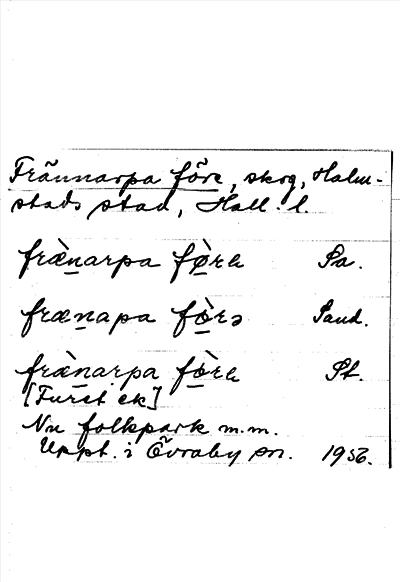 Frännarpa före, skog, Halm-
stads stad, Hall. l.
fræ̀n̲arpa fø̲̀rə Pa.
fræn̲apa fò̲rs Sand.
fræ̀n̲arpa fø̲̀rə St.
[Furet ek]
Nu folkpark m.m.
Uppt. i Övraby sn. 1956.